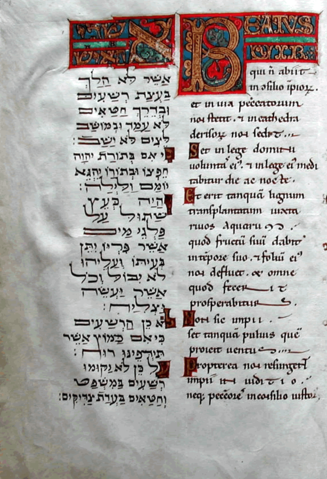 אשר לא הלך
בעצת רשעים
ובדרך חטאים
לא עמד ובמושב
לצים לא ישב:
כי אם בתורת יהוה
יומם ולילה:
והיה כעץ
שתול על
פלגי מים
אשר פריו יתן
בעיתו ועליהו
לא יבול וכל
אשר יעשה
יצליח:
לא כן הרשעים
כי אם כמוץ אשר
תידפינו רוח:
על כן לא יקומו
רשעים במשפט
וחטאים בעדת צדיקים:
BEATUS
VIR
qui ñ abiit
in ɔsilio ipiorȝ
et in via peccatorum
nō stetit. & in cathedra
derisoȝ nō sedit
Set in lege domini
voluntas ei'. & in lege ei' medi
tabitur die ac nocte
Et erit tanquā lignum
transplantatum iuxta
rivos aquarum
quod fructū suū dabit
in tēpore suo. & foliū ei'
nō defluet. & omne
quod fecerit
prosperabitur
Non sic impii
set tanquā pulvis quē
proicit ventus
Propterea nō resurgent
impii in iuditio
neq; peccatores in ɔsilio iustoȝ